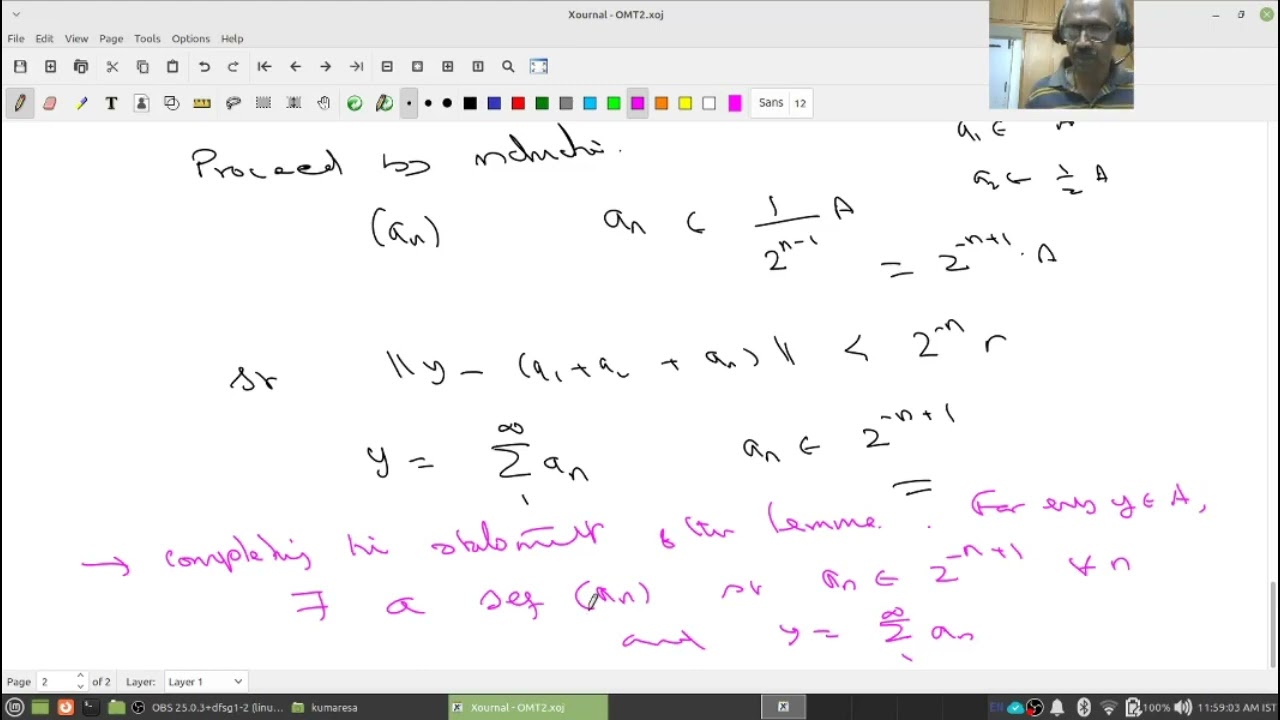 Xournal - OMT2.xoj
File Edit View Page Tools Options Help
Sans 12
a₁ ∈ A
Proceed by induction.
a₂ ∈ 1/2 A
(aₙ) aₙ ∈ 1/2ⁿ⁻¹ A
= 2⁻ⁿ⁺¹ . A
st ||y - (a₁ + a₂ + aₙ)|| < 2⁻ⁿ r
y = ∑₁^∞ aₙ aₙ ∈ 2⁻ⁿ⁺¹
→ completing the statement of the lemma. For every y ∈ A,
∃ a seq (aₙ) st aₙ ∈ 2⁻ⁿ⁺¹ ∀ n
and y = ∑₁^∞ aₙ
Page 2 of 2 Layer: Layer 1
OBS 25.0.3+dfsg1-2 (linu... kumaresa Xournal - OMT2.xoj EN 100% 11:59:03 AM IST